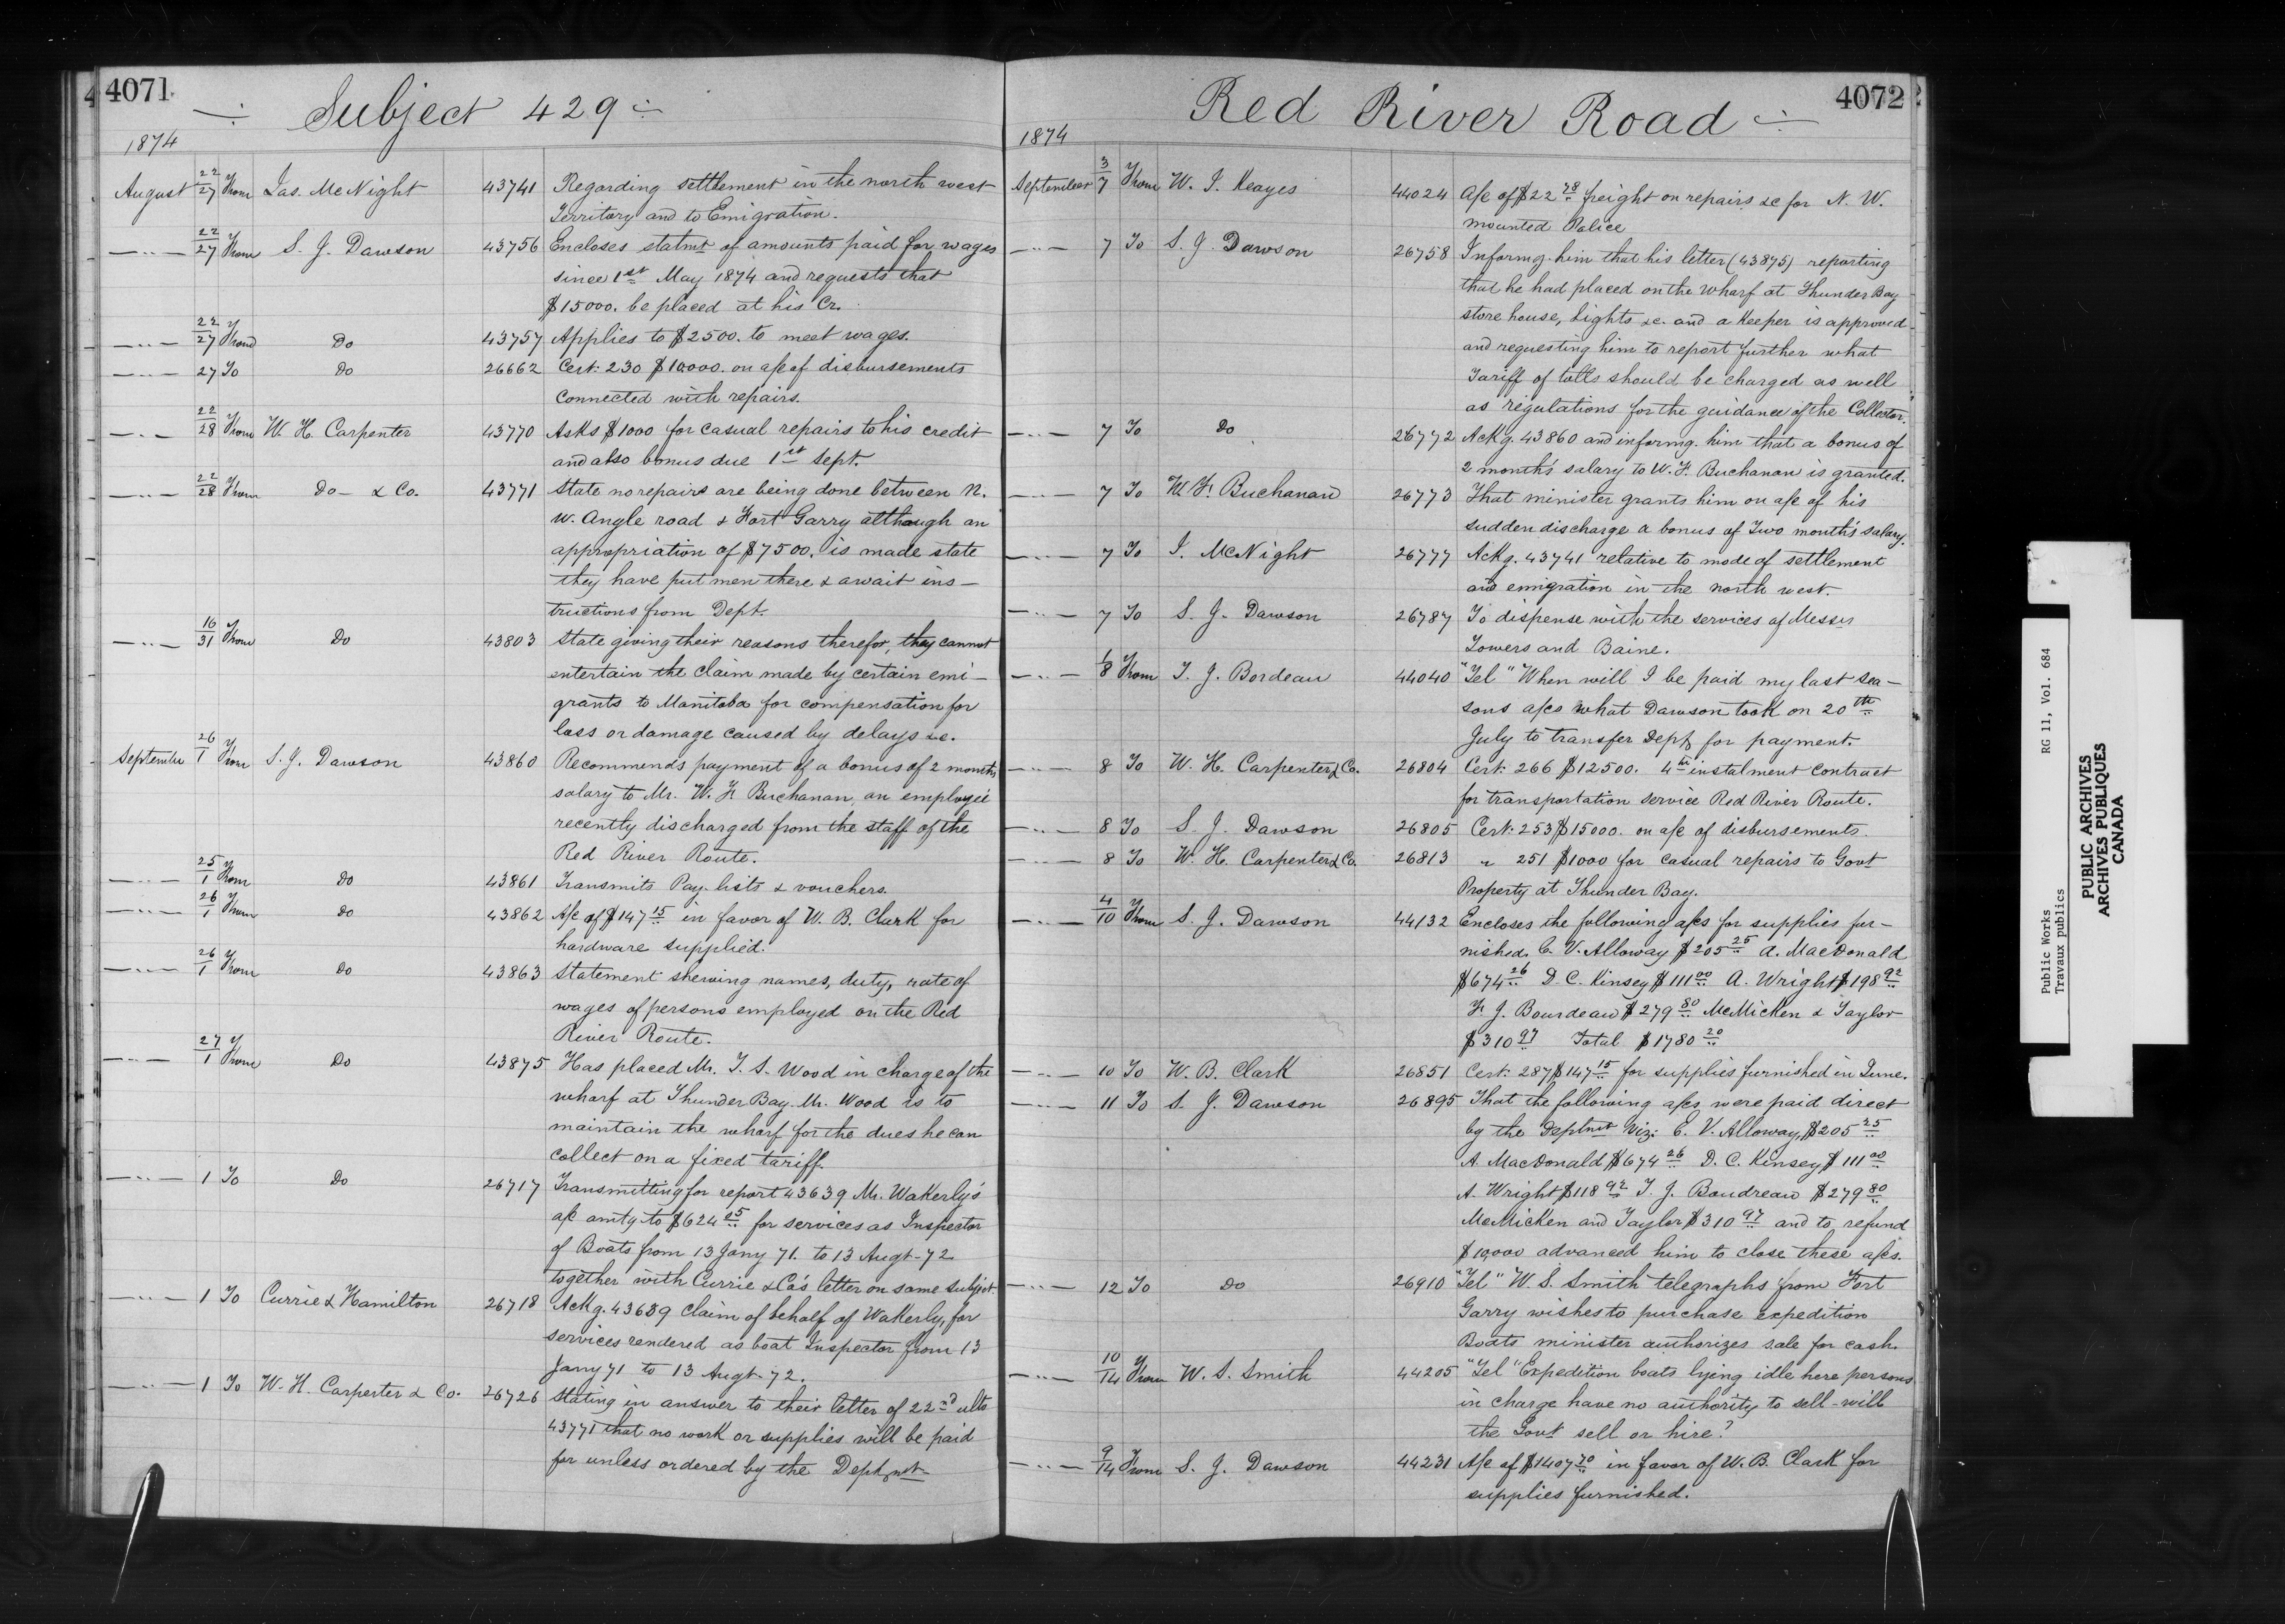 4071
÷ Subject 429 ÷
1874
August 22/27 From Jas. McNight 43741 Regarding settlement in the north west
Territory and to Emigration.
—"— 22/27 From S. J. Dawson 43756 Encloses statmt of amounts paid for wages
since 1st May 1874 and requests that
$15000. be placed at his Cr.
—"— 22/27 From Do 43757 Applies to $2500. to meet wages.
—"— 27 To Do 26662 Cert: 230 $10000. on a/c of disbursements
connected with repairs.
—"— 22/28 From W. H. Carpenter 43770 Asks $1000 for casual repairs to his credit
and also bonus due 1st Sept.
—"— 22/28 From Do — & Co. 43771 State no repairs are being done between N.
W. Angle road & Fort Garry although an
appropriation of $7500. is made state
they have put men there & await ins–
tructions from Dept.
—"— 16/31 From Do 43803 State giving their reasons therefor, they cannot
entertain the claim made by certain emi–
grants to Manitoba for compensation for
loss or damage caused by delays &c.
September 26/1 From S. J. Dawson 43860 Recommends payment of a bonus of 2 months
salary to Mr. W. F. Buchanan, an employeé
recently discharged from the staff of the
Red River Route.
—"— 25/1 From Do 43861 Transmits Pay-lists & vouchers.
—"— 26/1 From Do 43862 A/c of $147 15 in favor of W. B. Clark for
hardware supplied.
—"— 26/1 From Do 43863 Statement shewing names, duty, rate of
wages of persons employed on the Red
River Route.
—"— 27/1 From Do 43875 Has placed Mr. T. S. Wood in charge of the
wharf at Thunder Bay. Mr. Wood is to
maintain the wharf for the dues he can
collect on a fixed tariff.
—"— 1 To Do 26717 Transmitting for report 43639 Mr. Wakerly's
a/c amtg to $624 25 for services as Inspector
of Boats from 13 Jany 71. to 13 Augt-72
together with Currie & Co's letter on same subject.
—"— 1 To Currie & Hamilton 26718 Ackg. 43639 claim of behalf of Wakerly, for
services rendered as boat Inspector from 13
Jany 71 to 13 Augt-72.
—"— 1 To W. H. Carpenter & Co. 26726 Stating in answer to their letter of 22nd ulto
43771 that no work or supplies will be paid
for unless ordered by the Deptmt

4072
Red River Road ÷
1874
September 3/7 From W. J. Keayes 44024 A/c of $22 78 freight on repairs &c for N. W.
mounted Police
—"— 7 To S. J. Dawson 26758 Informg. him that his letter (43875) reporting
that he had placed on the wharf at Thunder Bay
store house, lights &c. and a Keeper is approved
and requesting him to report further what
Tariff of tolls should be charged as well
as regulations for the guidance of the Collector.
—"— 7 To Do 26772 Ackg. 43860 and informg. him that a bonus of
2 month's salary to W. F. Buchanan is granted.
—"— 7 To W. F. Buchanan 26773 That minister grants him on a/c of his
sudden discharge a bonus of Two month's salary.
—"— 7 To J. McNight 26777 Ackg. 43741 relative to mode of settlement
and emigration in the north west.
—"— 7 To S. J. Dawson 26787 To dispense with the services of Messrs
Towers and Baine.
—"— 1/8 From T. J. Bordeau 44040 "Tel" When will I be paid my last sea–
sons a/cs what Dawson took on 20th
July to transfer Dept, for payment.
—"— 8 To W. H. Carpenter & Co. 26804 Cert: 266 $12500. 4th instalment contract
for transportation service Red River Route.
—"— 8 To S. J. Dawson 26805 Cert: 253 $15000. on a/c of disbursements.
—"— 8 To W. H. Carpenter & Co. 26813 " 251 $1000 for casual repairs to Govt
Property at Thunder Bay.
—"— 4/10 From S. J. Dawson 44132 Encloses the following a/cs for supplies fur–
nished. C. V. Alloway $205 25 A. MacDonald
$674 26 D. C. Kinsey $111 00 A. Wright $198 92
F. J. Bourdeau $279 80 McMicken & Taylor
$310 97 Total $1780 20
—"— 10 To W. B. Clark 26851 Cert: 287 $147 15 for supplies furnished in June.
—"— 11 To S. J. Dawson 26895 That the following a/cs were paid direct
by the Deptmt Viz: C. V. Alloway, $205 25
A. MacDonald $674 26 D. C. Kinsey $111 00
A. Wright $118 92 T. J. Boudreau $279 80
McMicken and Taylor $310 97 and to refund
$10,000 advanced him to close these a/cs.
—"— 12 To Do 26910 "Tel" W. S. Smith telegraphs from Fort
Garry wishes to purchase expedition
Boats minister authorizes sale for cash.
—"— 10/14 From W. S. Smith 44205 "Tel" Expedition boats lying idle here persons
in charge have no authority to sell – will
the Govt sell or hire?
—"— 9/14 From S. J. Dawson 44231 A/c of $1407 70 in favor of W. B. Clark for
supplies furnished.

Public Works RG 11, Vol. 684
Travaux publics
PUBLIC ARCHIVES
ARCHIVES PUBLIQUES
CANADA